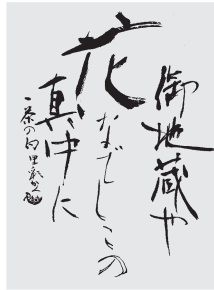 御地蔵や
花なでしこの
真中に
一茶の句